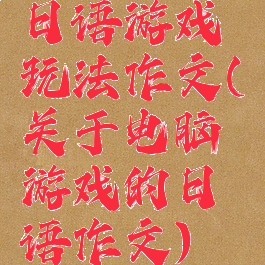 日语游戏
玩法作文(
关于电脑
游戏的日
语作文)